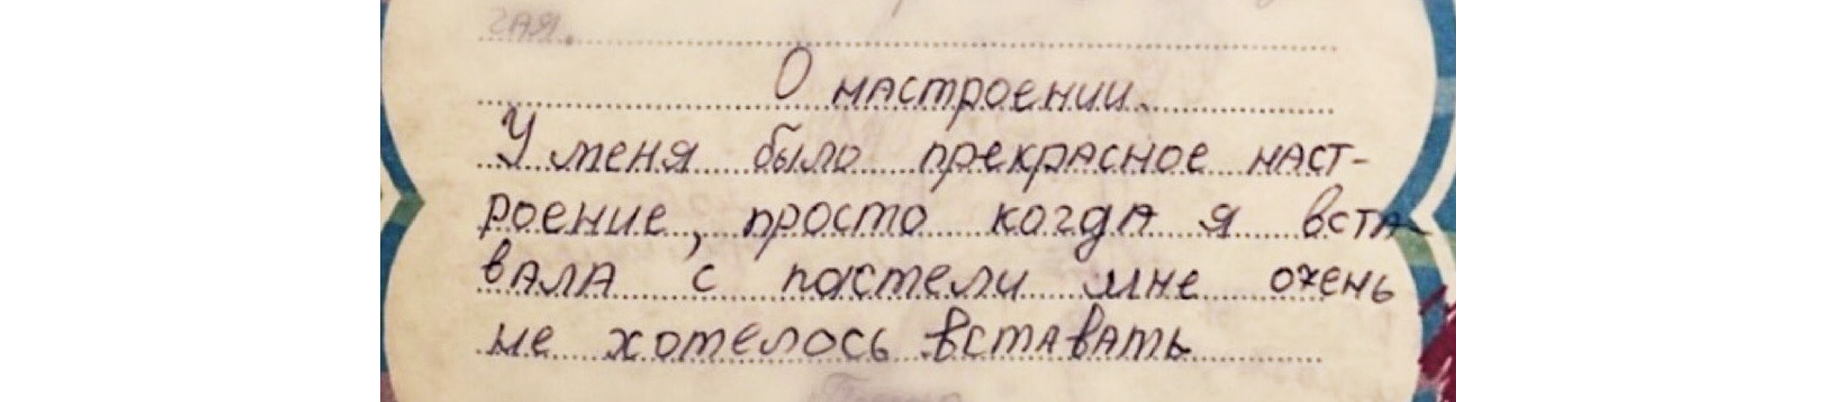 гая.
О настроении.
У меня было прекрасное наст-
роение, просто когда я вста-
вала с пастели мне очень
не хотелось вставать